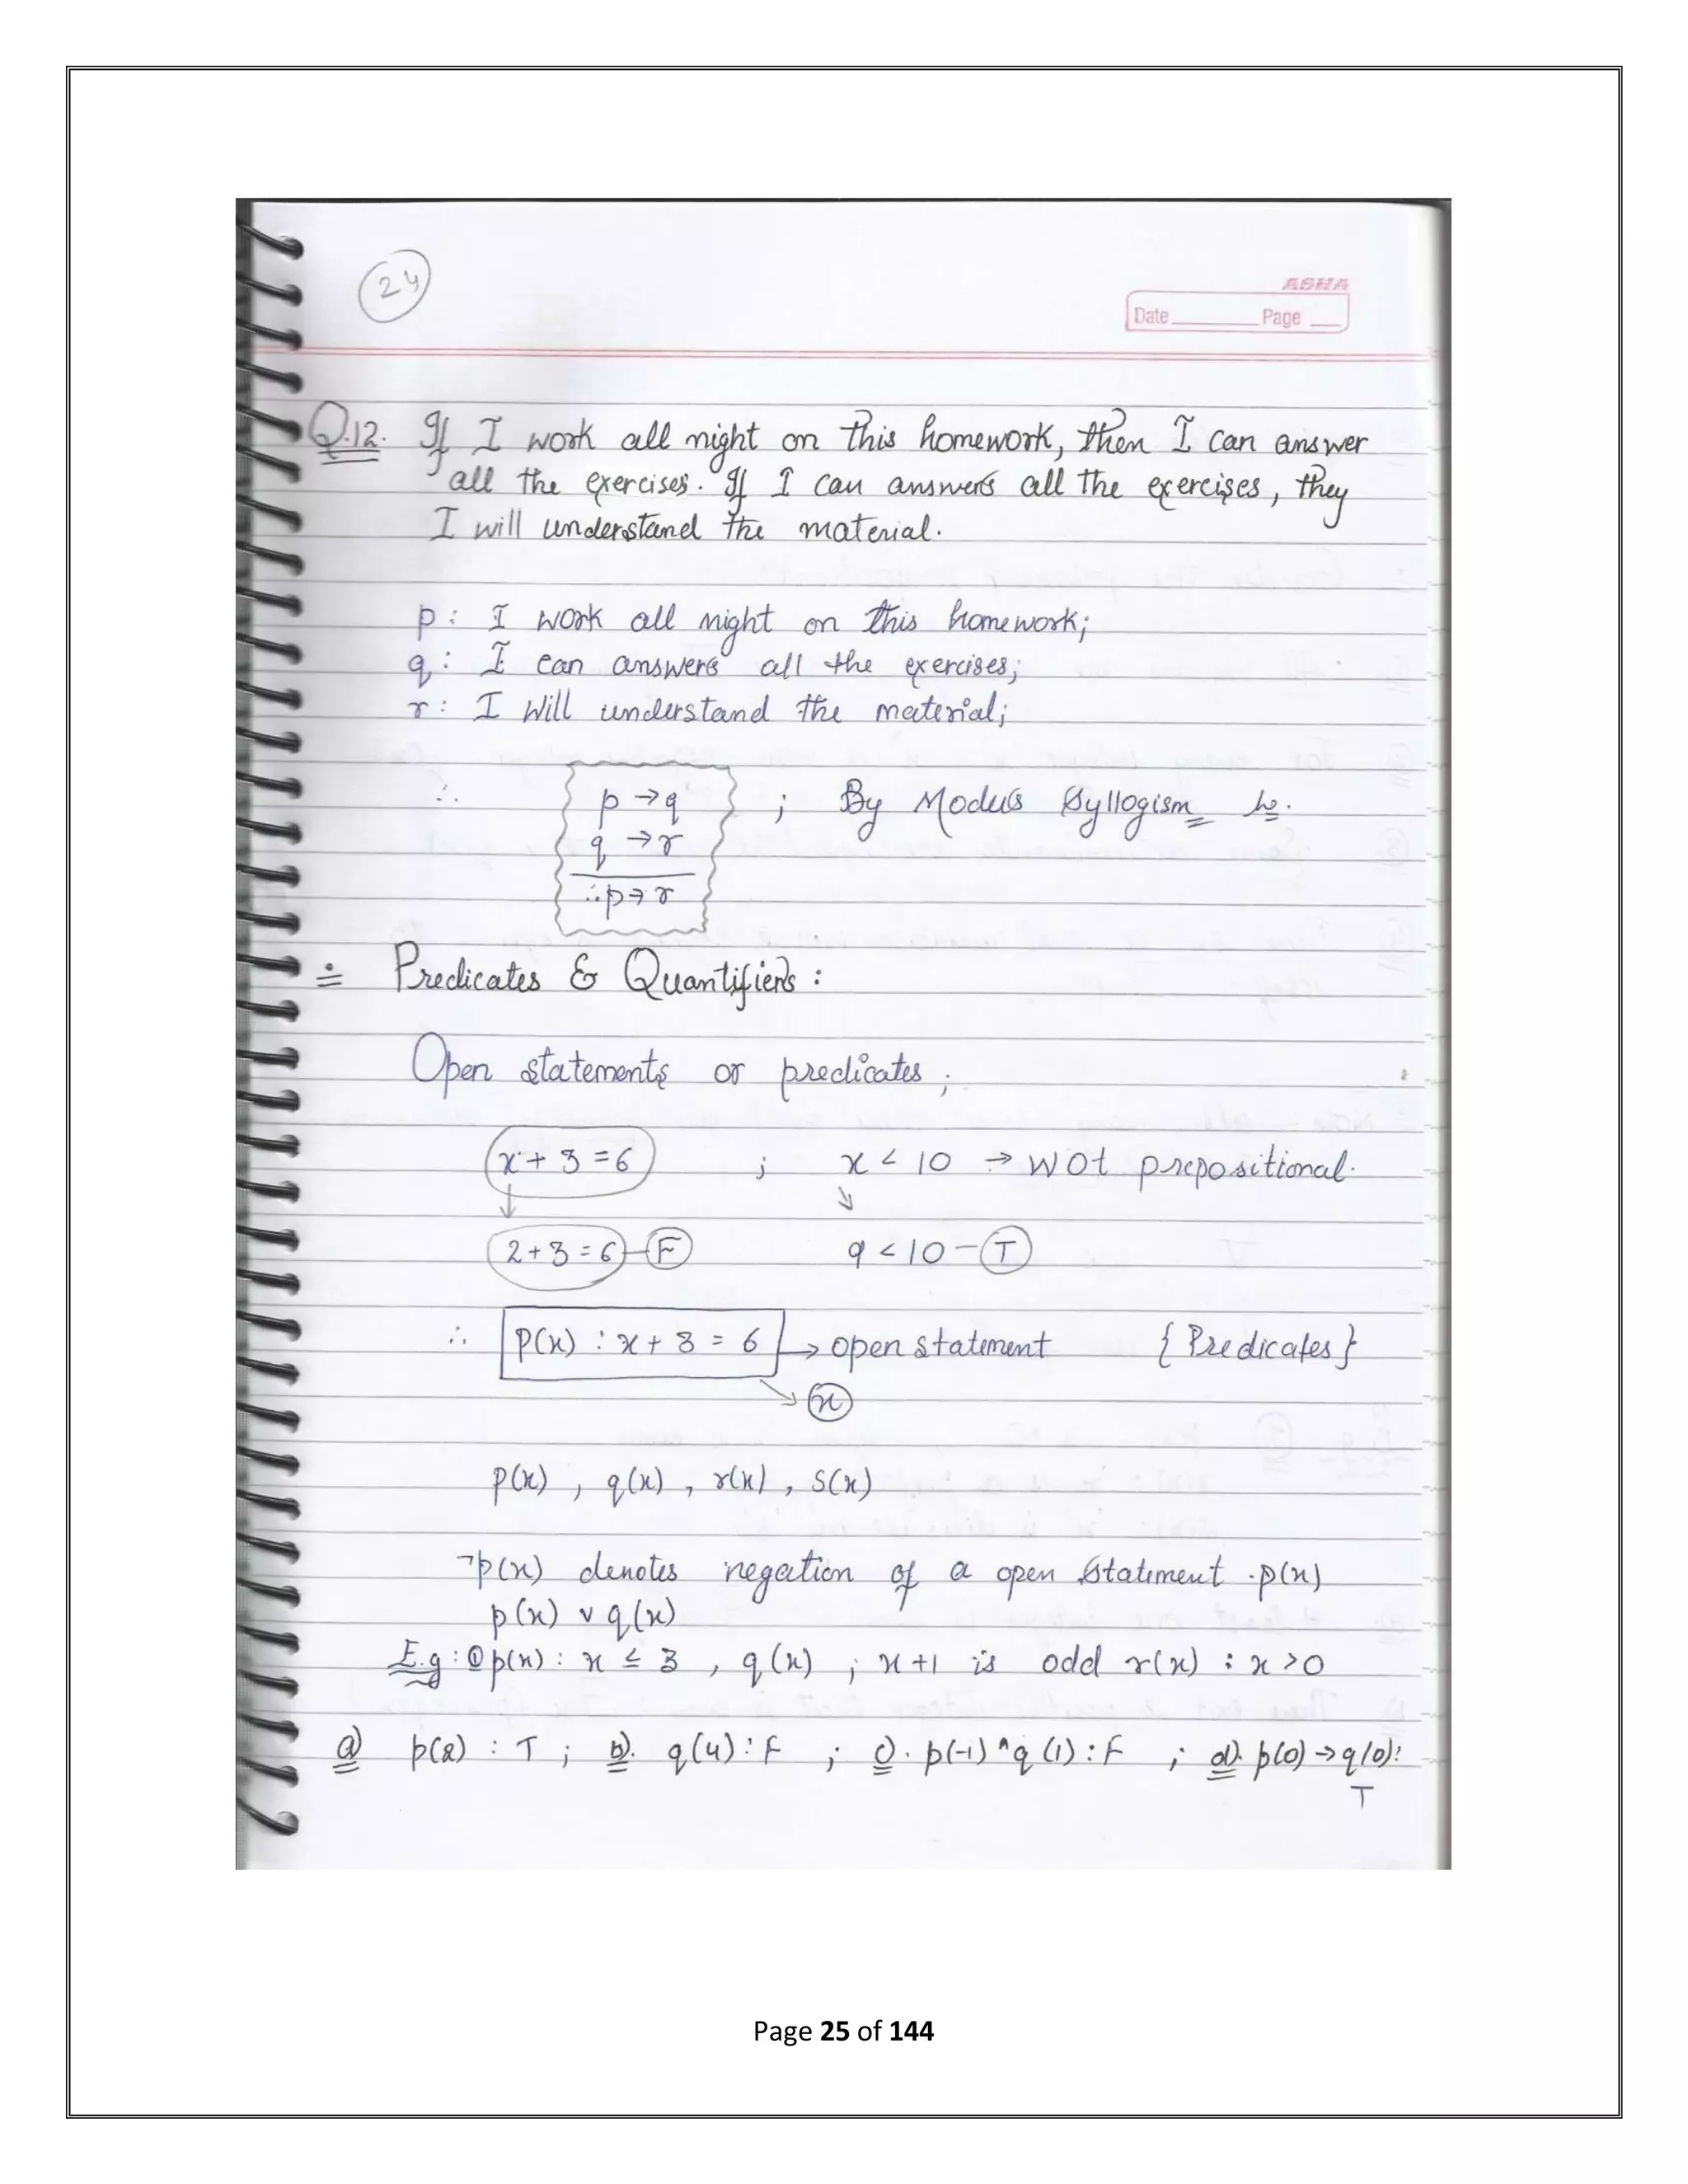 24
ASHA
Date Page
Q.12. If I work all night on this homework, then I can answer
all the exercises. If I can answers all the exercises, they
I will understand the material.
p : I work all night on this homework;
q : I can answers all the exercises;
r : I will understand the material;
∴ p → q ; By Modus Syllogism
q → r
∴ p → r
Predicates & Quantifiers :
Open statements or predicates ;
x + 3 = 6 ; x < 10 → Not prepositional.
2 + 3 = 6 – F 9 < 10 – T
∴ P(x) : x + 3 = 6 → open statement { Predicates }
x
p(x) , q(x) , r(x) , s(x)
¬p(x) denotes negation of a open statement p(x)
p(x) v q(x)
E.g : ① p(x) : x ≤ 3 , q(x) ; x+1 is odd r(x) : x > 0
a) p(2) : T ; b). q(4) : F ; c). p(-1) ^ q(1) : F ; d). p(0) → q(0):
T
Page 25 of 144